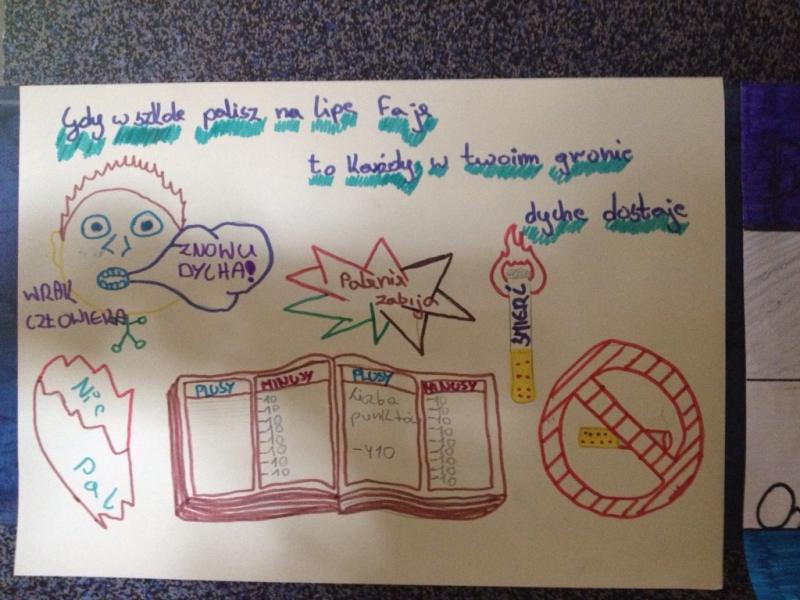 Gdy w szkole palisz na lipę faję
to każdy w twoim gronie
dychę dostaje
ZNOWU
DYCHA!
WRAK
CZŁOWIEKA
Palenie
zabija
ŚMIERĆ
Nie
pal
PLUSY
MINUSY
-10
-10
-10
-10
-10
-10
-10
-10
PLUSY
Liczba
punktów
-410
MINUSY
-10
-10
-10
-10
-10
-10
-10
-10
-10